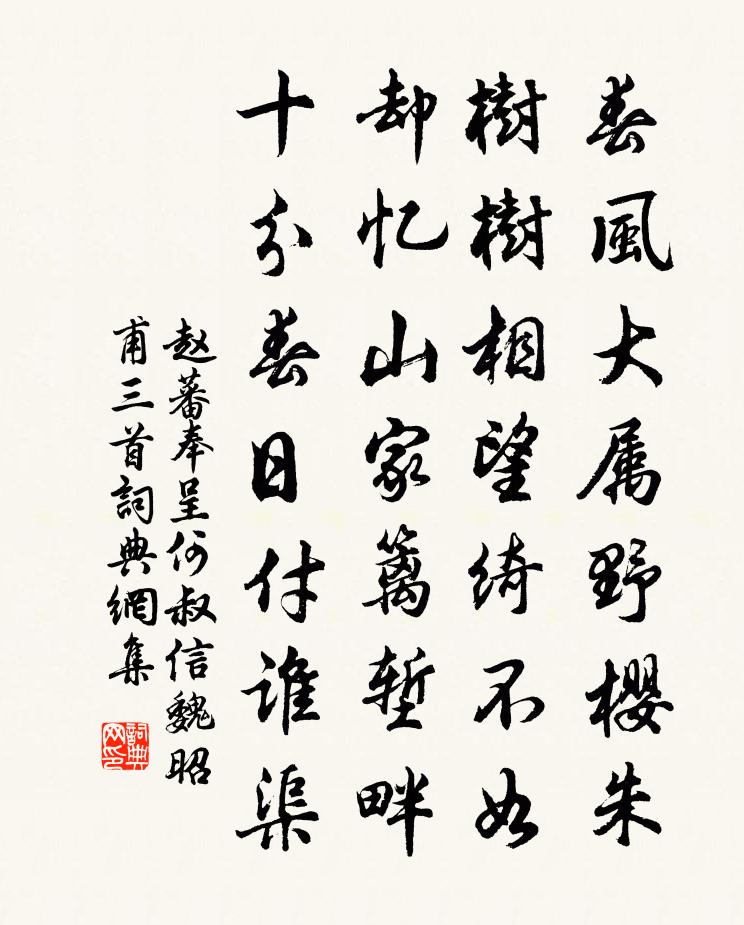 春風大属野櫻朱
樹樹相望绮不如
却忆山家籬堑畔
十分春日付谁渠
赵蕃奉呈何叔信魏昭
甫三首詞典網集
詞典网印